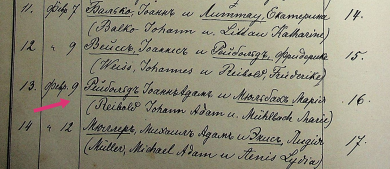 11. Фев. 7 Балько, Іоаннъ и Литтау, Екатерина 14.
(Balko Johann u. Littau Katharine)
12 " 9 Вейссъ, Іоаннесъ и Рейбольдъ, Фридерике 15.
(Weiss, Johannes u Reibold Friederike)
13. Фев. 9 Рейбольдъ Іоаннъ Адамъ и Мюльбахъ Марія 16.
(Reibold Johann Adam u. Mühlbach Marie)
14 " 12 Мюллеръ, Михаилъ Адамъ и Энисъ, Лидія 17.
(Müller, Michael Adam u Aenis Lydia)